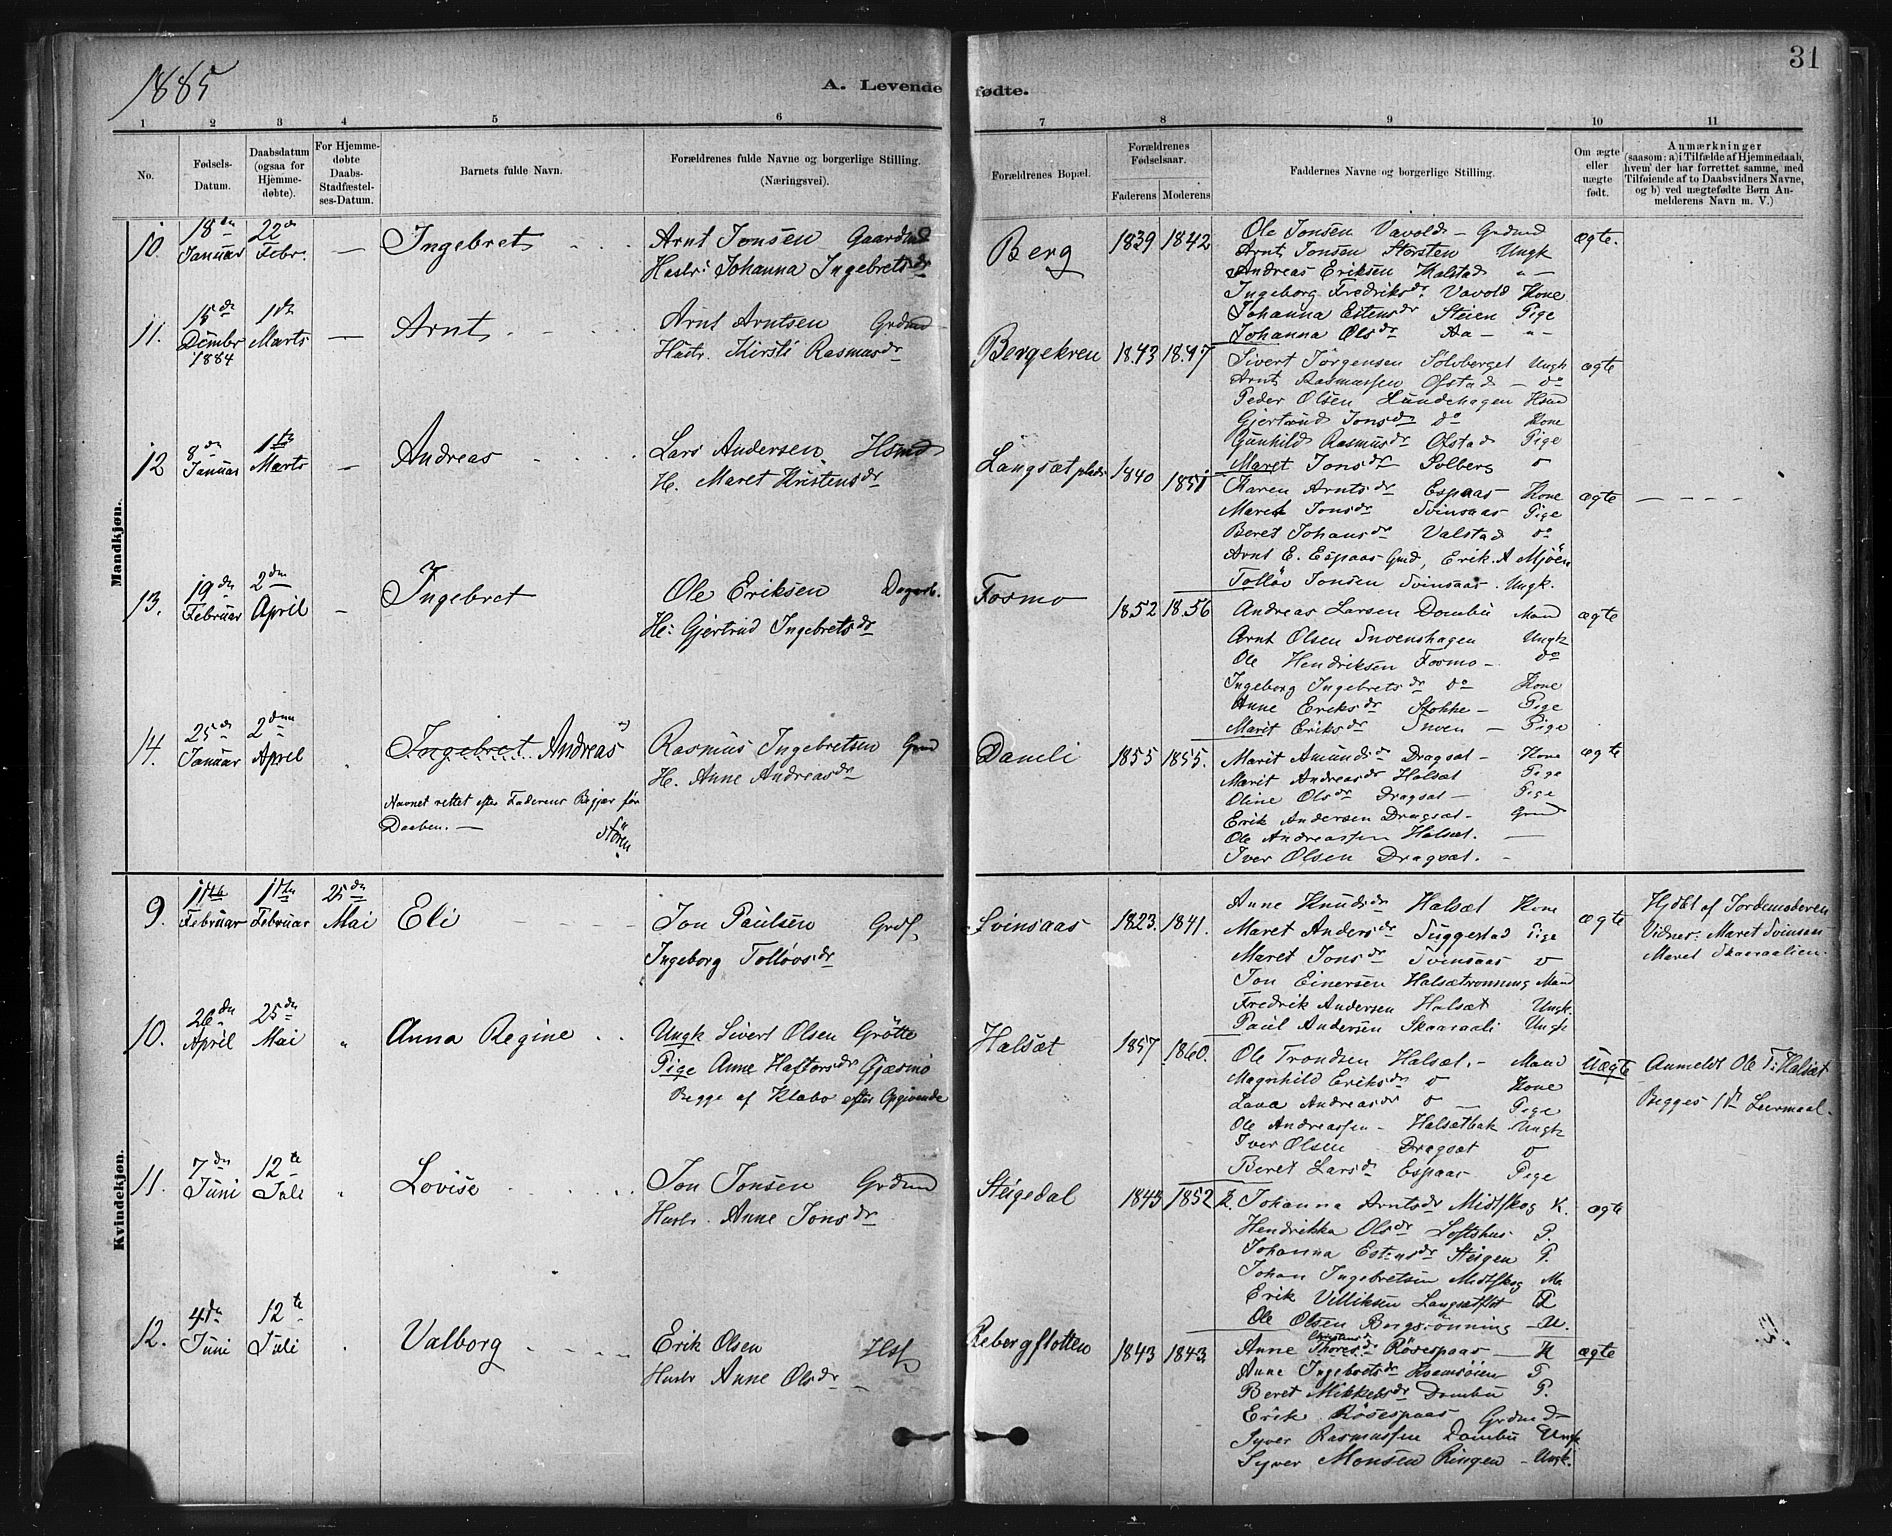 1885
A. Levende fødte.
31
1 2 3 4 5 6 7 8 9 10 11
No.
Fødsels-Datum.
Daabsdatum (ogsaa for Hjemmedøbte).
For Hjemmedøbte Daabs-Stadfæstelses-Datum.
Barnets fulde Navn.
Forældrenes fulde Navne og borgerlige Stilling. (Næringsvei).
Forældrenes Bopæl.
Forældrenes Fødselsaar.
Faderens Moderens
Faddernes Navne og borgerlige Stilling.
Om ægte eller uægte født.
Anmærkninger
(saasom: a) i Tilfælde af Hjemmedaab,
hvem der har forrettet samme, med
Tilføiende af to Daabsvidners Navne,
og b) ved uægtefødte Børn Anmelderens Navn m. V.)
Mandkjøn.
10. 18de Januar 22de Febr. — Ingebret
Arnt Jonsen Gaardmd
Hustr: Johanna Ingebretsdr
Berg 1839 1842
Ole Jonsen Vavold – Grdmd
Arnt Jonsen Storsten Ungk
Andreas Eriksen Halstad " —
Ingeborg Fredriksdr Vavold Kone
Johanna Estensdr Steien Pige
Johanna Olsdr Aa — " —
ægte.
11. 15de Decmbr 1884 1ste Marts — Arnt
Arnt Arntsen Grdmd
Hustr. Kirsti Rasmusdr
Bergekren 1843 1847
Sivert Jörgensen Solvberget Ungk
Arnt Rasmussen Ofstad — do
Peder Olsen Lundehagen Hsmd
Gjertrud Jonsdr do Kone
Gunhild Rasmusdr Ofstad Pige
Maret Jonsdr Solberg o
ægte
12 8de Januar 1ste Marts — Andreas
Lars Andersen Hsmd
H. Maret Kristensdr
Langsætplads 1840 1851
Karen Arntsdr Espaas Kone
Maret Jonsdr Svinsaas Pige
Beret Johansdr Valstad do
Arnt E. Espaas Gmd, Erik A Mjöen
Tollöv Jonsen Svinsaas Ungk.
ægte — — — —
13. 19de Februar 2den April — Ingebret
Ole Eriksen Dagarb.
H: Gjertrud Ingebretsdr
Fosmo 1852 1856
Andreas Larsen Dombu Mand
Arnt Olsen Snoenshagen Ungk
Ole Hendriksen Fosmo — do
Ingeborg Ingebretsdr do Kone
Anne Eriksdr Stokke — Pige
Marit Eriksdr Snoen — Pige
ægte
14. 25de Januar 2den April " Ingebret Andreas
Navnet rettet efter Faderens Begjær før
Daaben. — Stören
Rasmus Ingebretsen Gmd
H. Anne Andreasdr
Damli 1855 1855.
Marit Amundsdr Dragsat – Kone
Marit Andreasdr Halsat Pige
Oline Olsdr Dragsat — Pige
Erik Andersen Dragsæt – Gmd
Ole Andreassen Halsæt. —
Iver Olsen Dragsat. -
ægte
Kvindekjøn.
9. 11te Februar 11te Februar 25de Mai Eli
Jon Paulsen Grdf.
Ingeborg Tollövsdr
Svinsaas 1823. 1841.
Anne Knudsdr Halsæt Kone
Maret Andersdr Suggestad Pige
Maret Jonsdr Svinsaas o
Jon Einersen Halsætrønning Mand
Fredrik Andersen Halsæt Ungk.
Paul Andersen Skaaraali Ungk
ægte
Hjdbt af Jordemoderen
Vidner: Maret Svinsaas
Maret Skaaraalien.
10. 26de April 25de Mai " Anna Regine
Ungk Sivert Olsen Grötte
Pige Anne Haftorsdr Gjæsmo
Begge af Klæbo efter Opgivende
Halsæt 1857 1860.
Ole Trondsen Halsæt. – Mand
Magnhild Eriksdr o Kone
Lava Andreasdr o — Pige
Ole Andreassen – Halsætbak Ungk
Iver Olsen Dragsat o
Beret Larsdr Espaas Pige
Uægte
Anmeldt Ole T. Halsæt
Begges 1ste Leiermaal.
11. 7de Juni 12te Juli " Lovise
Jon Jonsen Grdmd
Hustr. Anne Jonsdr
Steigedal 1843 1852
Johanna Arntsdr Midtskog K.
Hendrikka Olsdr Loftshus P.
Johanna Estensdr Steigen P.
Johan Ingebretsen Midtskog M.
Erik Villiksen Langsætflot
Ole Olsen Bergsrönning – U.
ægte
12. 4de Juni 12te Juli " Valborg
Erik Olsen Hsf
Hustr Anne Olsdr —
Rebergflotten 1843 1843.
Anne Thoresdr Rösespaas — K
Anne Ingebretsdr P
Beret Mikkelsdr Dombu P.
Erik Rösespaas Grdmd
Syver Rasmussen Dombu Ungk
Syver Monsen Ringen – Ungk.
ægte